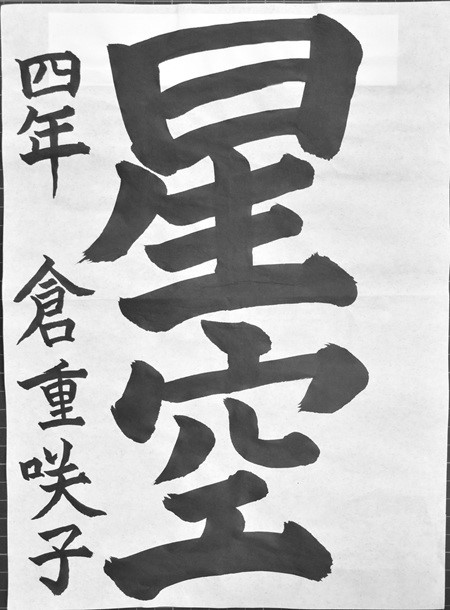 星空
四年 倉重咲子